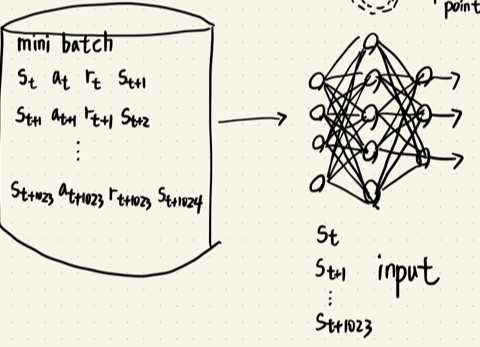 point
mini batch
St at rt St+1
St+1 at+1 rt+1 St+2
⋮
St+1023 at+1023 rt+1023 St+1024
St
St+1 input
⋮
St+1023